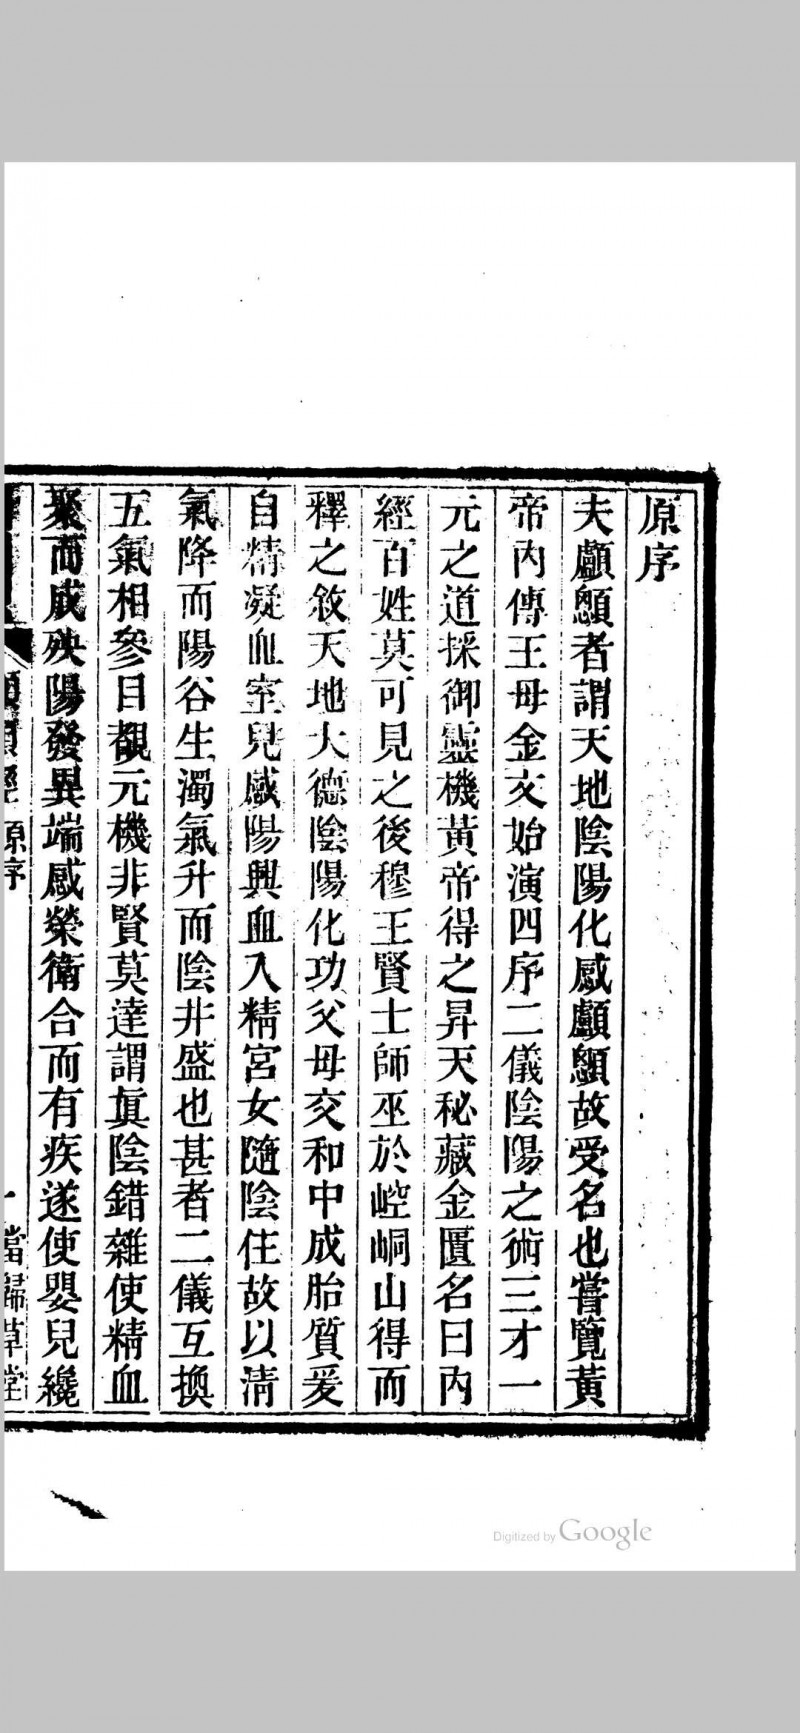 原序
夫顱顖者謂天地陰陽化感顱顖故受名也嘗覽黃
帝內傳王母金文始演四序二儀陰陽之術三才一
元之道採御靈機黃帝得之昇天秘藏金匱名曰內
經百姓莫可見之後穆王賢士師巫於崆峒山得而
釋之敘天地大德陰陽化功父母交和中成胎質爰
自精凝血室兒感陽興血入精宮女隨陰住故以清
氣降而陽谷生濁氣升而陰井盛也甚者二儀互換
五氣相參目覩元機非賢莫達謂真陰錯雜使精血
聚而成殃陽發異端感榮衛合而有疾遂使嬰兒纔
顱顖經 原序 一 當歸草堂
Digitized by Google